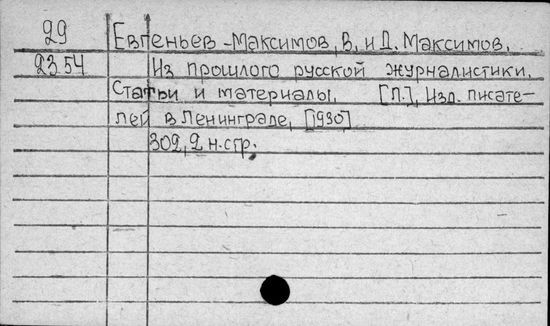 29 Евгеньев-Максимов, В. и Д. Максимов.
2354 Из прошлого русской журналистики.
Статьи и материалы. [Л.], Изд. писате-
лей в Ленинграде, [1930]
302, 2 н. стр.